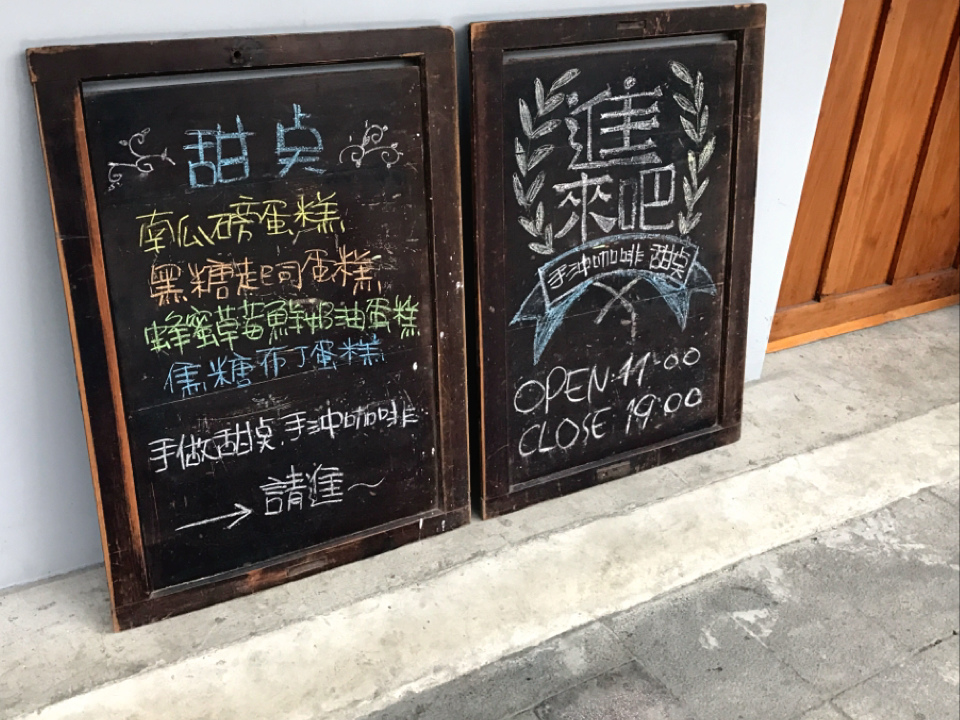 甜点
南瓜磅蛋糕
黑糖起司蛋糕
蜂蜜草莓鮮奶油蛋糕
焦糖布丁蛋糕
手做甜点.手沖咖啡
→ 請進~
進
來吧
手沖咖啡 甜点
OPEN:11:00
CLOSE 19:00